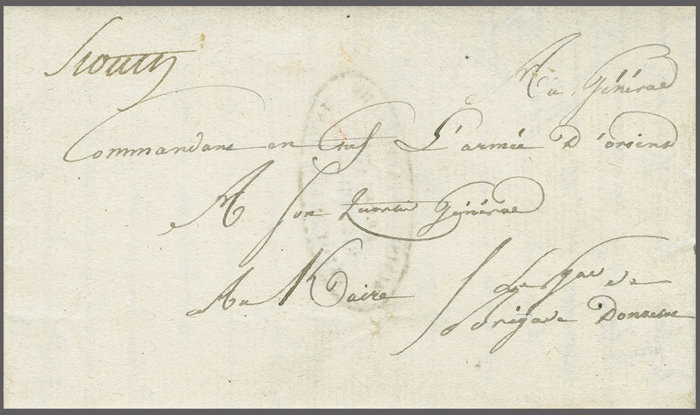 Siouty
Au Général
Commandant en chef L'armée D'orient
A Son Quartier Général
Au Kaire
Le Gal de
Brigade Donzelot